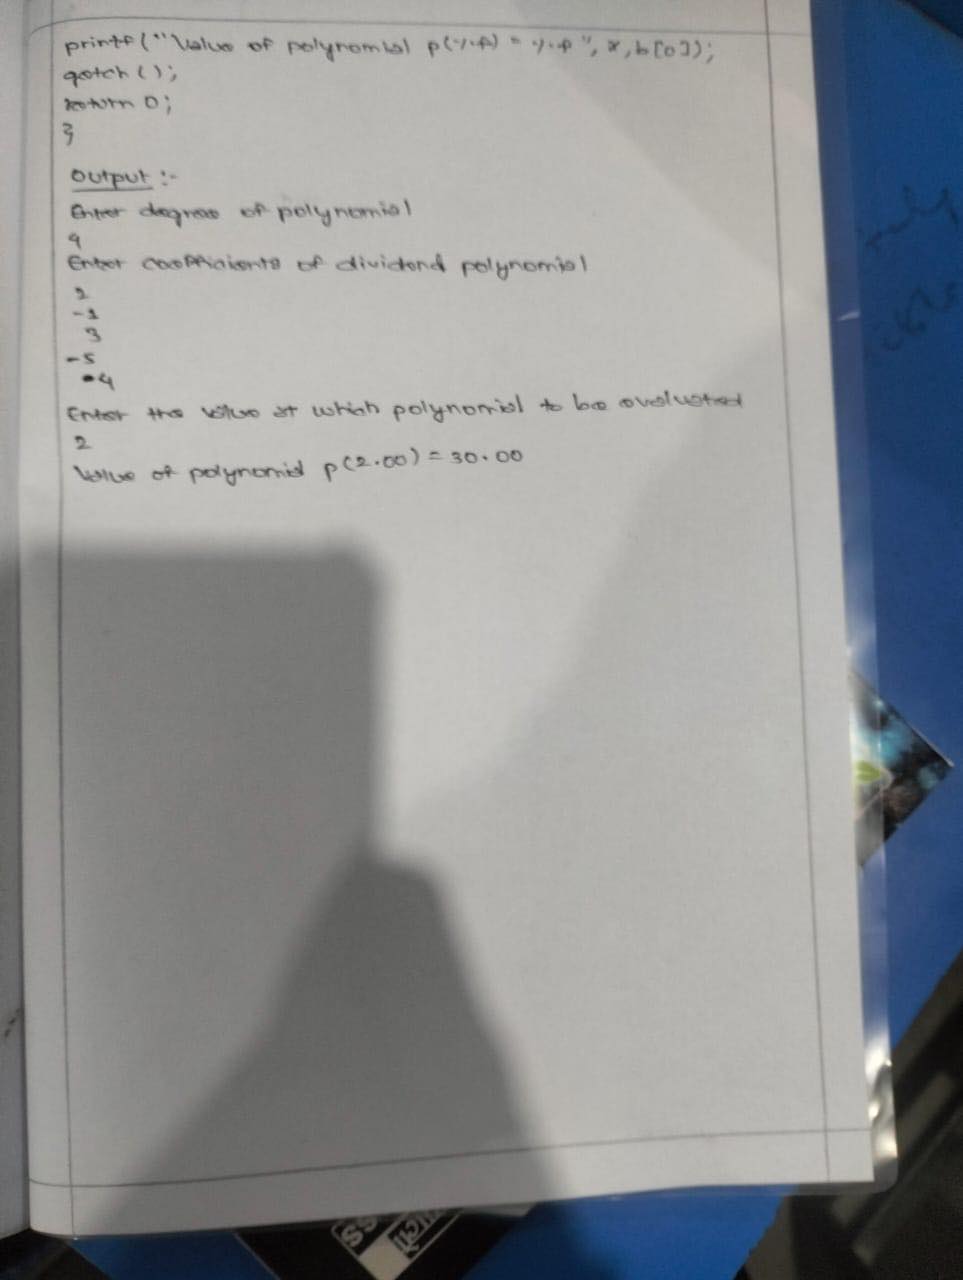 printf("Value of polynomial p(%.f) = %.f", x, b[0]);
getch();
return 0;
}
Output :-
Enter degree of polynomial
4
Enter coefficients of dividend polynomial
2
-1
3
-5
4
Enter the value at which polynomial to be evaluated
2
Value of polynomial p(2.00) = 30.00